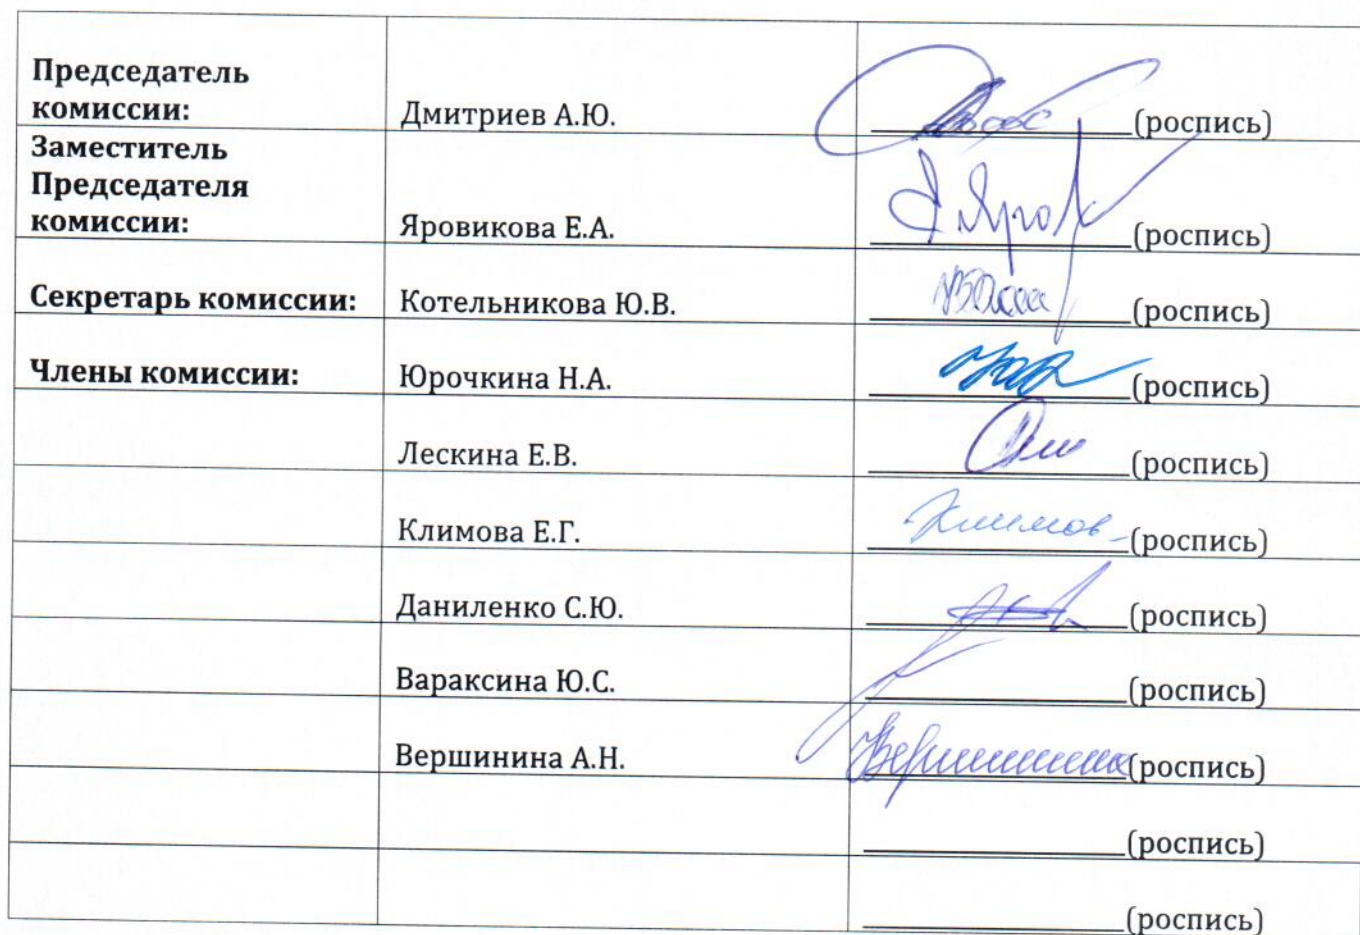 Председатель
комиссии: Дмитриев А.Ю. (роспись)
Заместитель
Председателя
комиссии: Яровикова Е.А. (роспись)
Секретарь комиссии: Котельникова Ю.В. (роспись)
Члены комиссии: Юрочкина Н.А. (роспись)
Лескина Е.В. (роспись)
Климова Е.Г. Климов (роспись)
Даниленко С.Ю. (роспись)
Вараксина Ю.С. (роспись)
Вершинина А.Н. Вершинина (роспись)
(роспись)
(роспись)